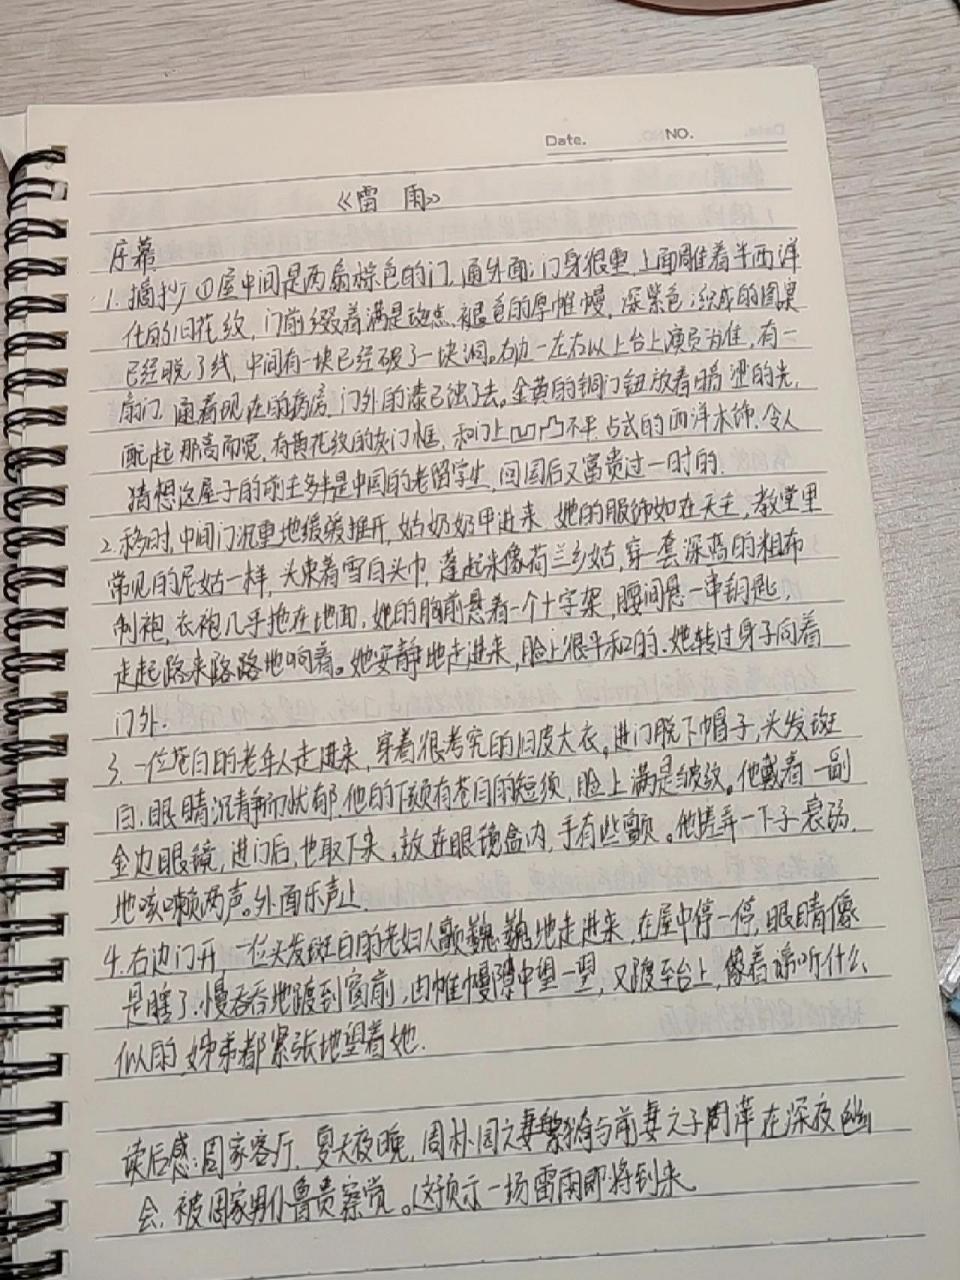 Date. NO.
《雷 雨》
序幕
1. 摘抄 ①屋中间是两扇棕色的门,通外面;门身很重,上面雕着半西洋
化的旧花纹,门前缀着满是斑点,褪色的厚帷幔,深紫色;织成的图案
已经脱了线,中间有一块已经破了一块洞。右边一左右以上台上演员为准,有一
扇门,通着现在的病房,门外的漆已蚀了去。金黄的铜门钮放着暗涩的光,
配起那高而宽,有黄花纹的灰门框,和门上凹凸不平,古式的西洋木饰,令人
猜想这屋子的前主多半是中国的老留学生,回国后又富贵过一时的.
2. 移时,中间门沉重地缓缓推开,姑奶奶甲进来,她的服饰如在天主,教堂里
常见的尼姑一样,头束着雪白头巾,蓬起来像荷兰乡姑,穿一套深蓝的粗布
制袍,衣袍几乎拖在地面,她的胸前悬着一个十字架,腰间悬一串钥匙,
走起路来咯咯地响着。她安静地走进来,脸上很平和的.她转过身子向着
门外.
3. 一位苍白的老年人走进来,穿着很考究的旧皮大衣,进门脱下帽子,头发斑
白,眼睛沉静而忧郁,他的下颏有苍白的短须,脸上满是皱纹。他戴着一副
金边眼镜,进门后,也取下来,放在眼镜盒内,手有些颤。他搓弄一下子,衰弱
地咳嗽两声。外面乐声止.
4. 右边门开,一位头发斑白的老妇人颤巍巍地走进来,在屋中停一停,眼睛像
是瞎了.慢吞吞地踱到窗前,由帷幔隙中望一望,又踱至台上,像着谛听什么
似的,姊弟都紧张地望着她.
读后感:周家客厅,夏天夜晚,周朴园之妻繁漪与前妻之子周萍在深夜幽
会,被周家男仆鲁贵察觉。这预示一场雷雨即将到来。